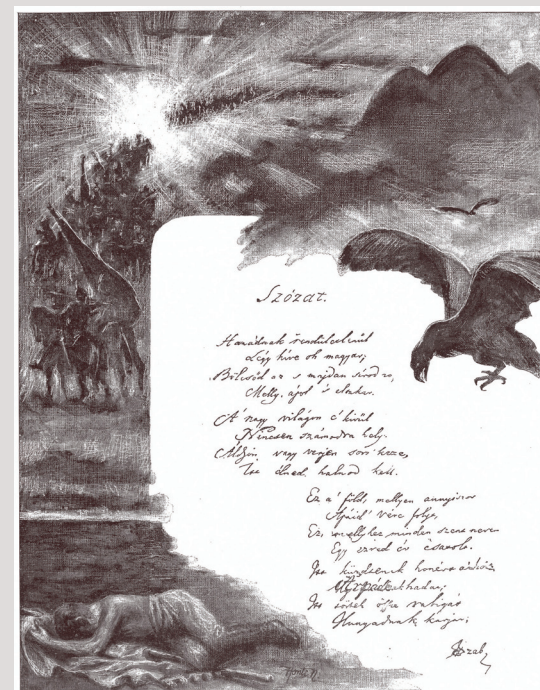 Szózat.
Hazádnak rendületlenűl
Légy híve oh magyar;
Bölcsőd az s majdan sírod is,
Melly ápol s eltakar.
A' nagy világon e' kivűl
Nincsen számodra hely.
Áldjon vagy verjen sors' keze,
Itt élned halnod kell.
Ez a' föld, mellyen annyiszor
Apáid' vére folyt,
Ez, mellyhez minden szent nevet
Egy ezred év csatolt.
Itt küzdtenek honért a' hős
Árpádnak hadai;
Itt törtek össze rabigát
Hunyadnak karjai;